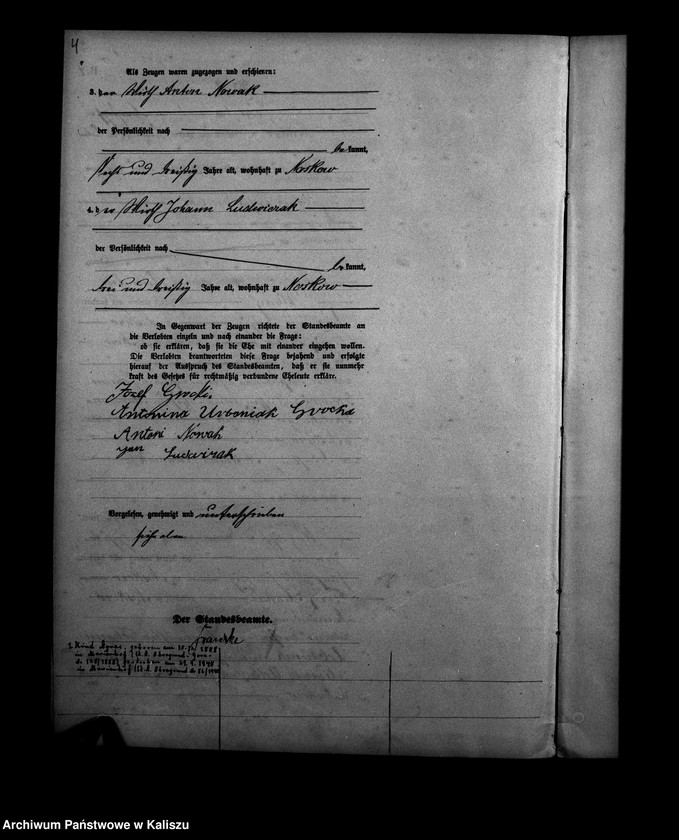 4
Als Zeugen waren zugezogen und erschienen:
3. der Wirth Anton Nowak
der Persönlichkeit nach
bekannt,
sechs und dreißig Jahre alt, wohnhaft zu Noskow
4. der Wirth Johann Ludwiczak
der Persönlichkeit nach
bekannt,
drei und dreißig Jahre alt, wohnhaft zu Noskow
In Gegenwart der Zeugen richtete der Standesbeamte an
die Verlobten einzeln und nach einander die Frage:
ob sie erklären, daß sie die Ehe mit einander eingehen wollen.
Die Verlobten beantworteten diese Frage bejahend und erfolgte
hierauf der Ausspruch des Standesbeamten, daß er sie nunmehr
kraft des Gesetzes für rechtmäßig verbundene Eheleute erkläre.
Józef
Antonina Urbaniak
Antoni Nowak
Jan
Vorgelesen, genehmigt und unterschrieben
siehe oben
Der Standesbeamte.
1. Kind Agnes, geboren am
in
gestorben am
in
Archiwum Państwowe w Kaliszu